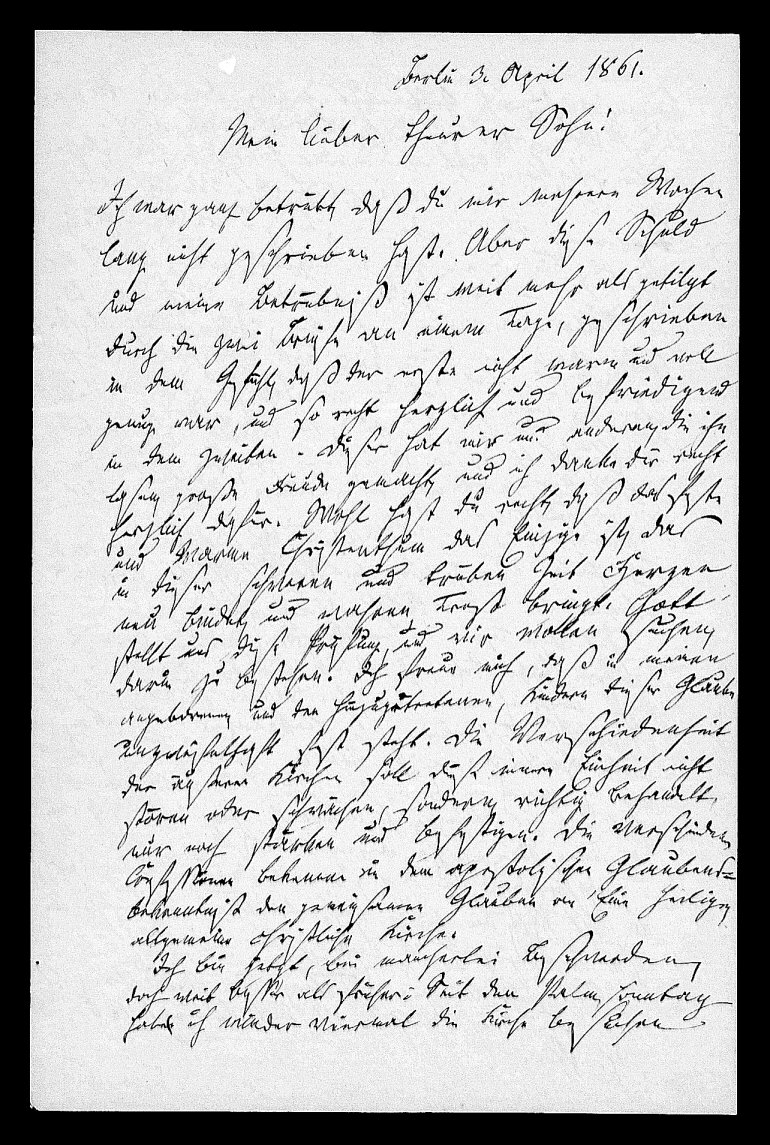 Berlin 3. April 1861.
Mein lieber theurer Sohn!
Ich war ganz betrübt, daß du mir mehrere Wochen
lang nicht geschrieben hast. Aber diese Schuld
und meine Betrübniß ist weit mehr als getilgt
durch die zwei Briefe an einem Tage, geschrieben
in dem Gefühl, daß der erste nicht warm und voll
genug war, und so recht herzlich und befriedigend
in dem zweiten. Dieser hat mir und anderen, die ihn
lasen große Freude gemacht, und ich danke dir recht
herzlich dafür. Wohl hast du recht, daß das feste
und warme Christenthum das Einzige ist, das
in dieser schweren und trüben Zeit Herzen
neu bindet, und wahren Trost bringt. Gott
stellt uns diese Prüfung, und wir wollen suchen,
darin zu bestehen. Ich freue mich, daß in meinen
angebornen und den hinzugetretenen, Kindern dieser Glaube
unzweifelhaft fest steht. Die Verschiedenheit
der äußeren Kirchen soll diese innere Einheit nicht
stören oder schwächen, sondern, richtig behandelt,
nur noch stärken und befestigen. Die verschiedenen
Confessionen bekennen in dem apostolischen Glaubens=
bekenntniß den gemeinsamen Glauben an Eine heilige,
allgemeine christliche Kirche.
Ich bin jetzt, bei mancherlei Beschwerden,
doch weit besser als früher. Seit dem Palmsonntag
habe ich wieder viermal die Kirche besuchen